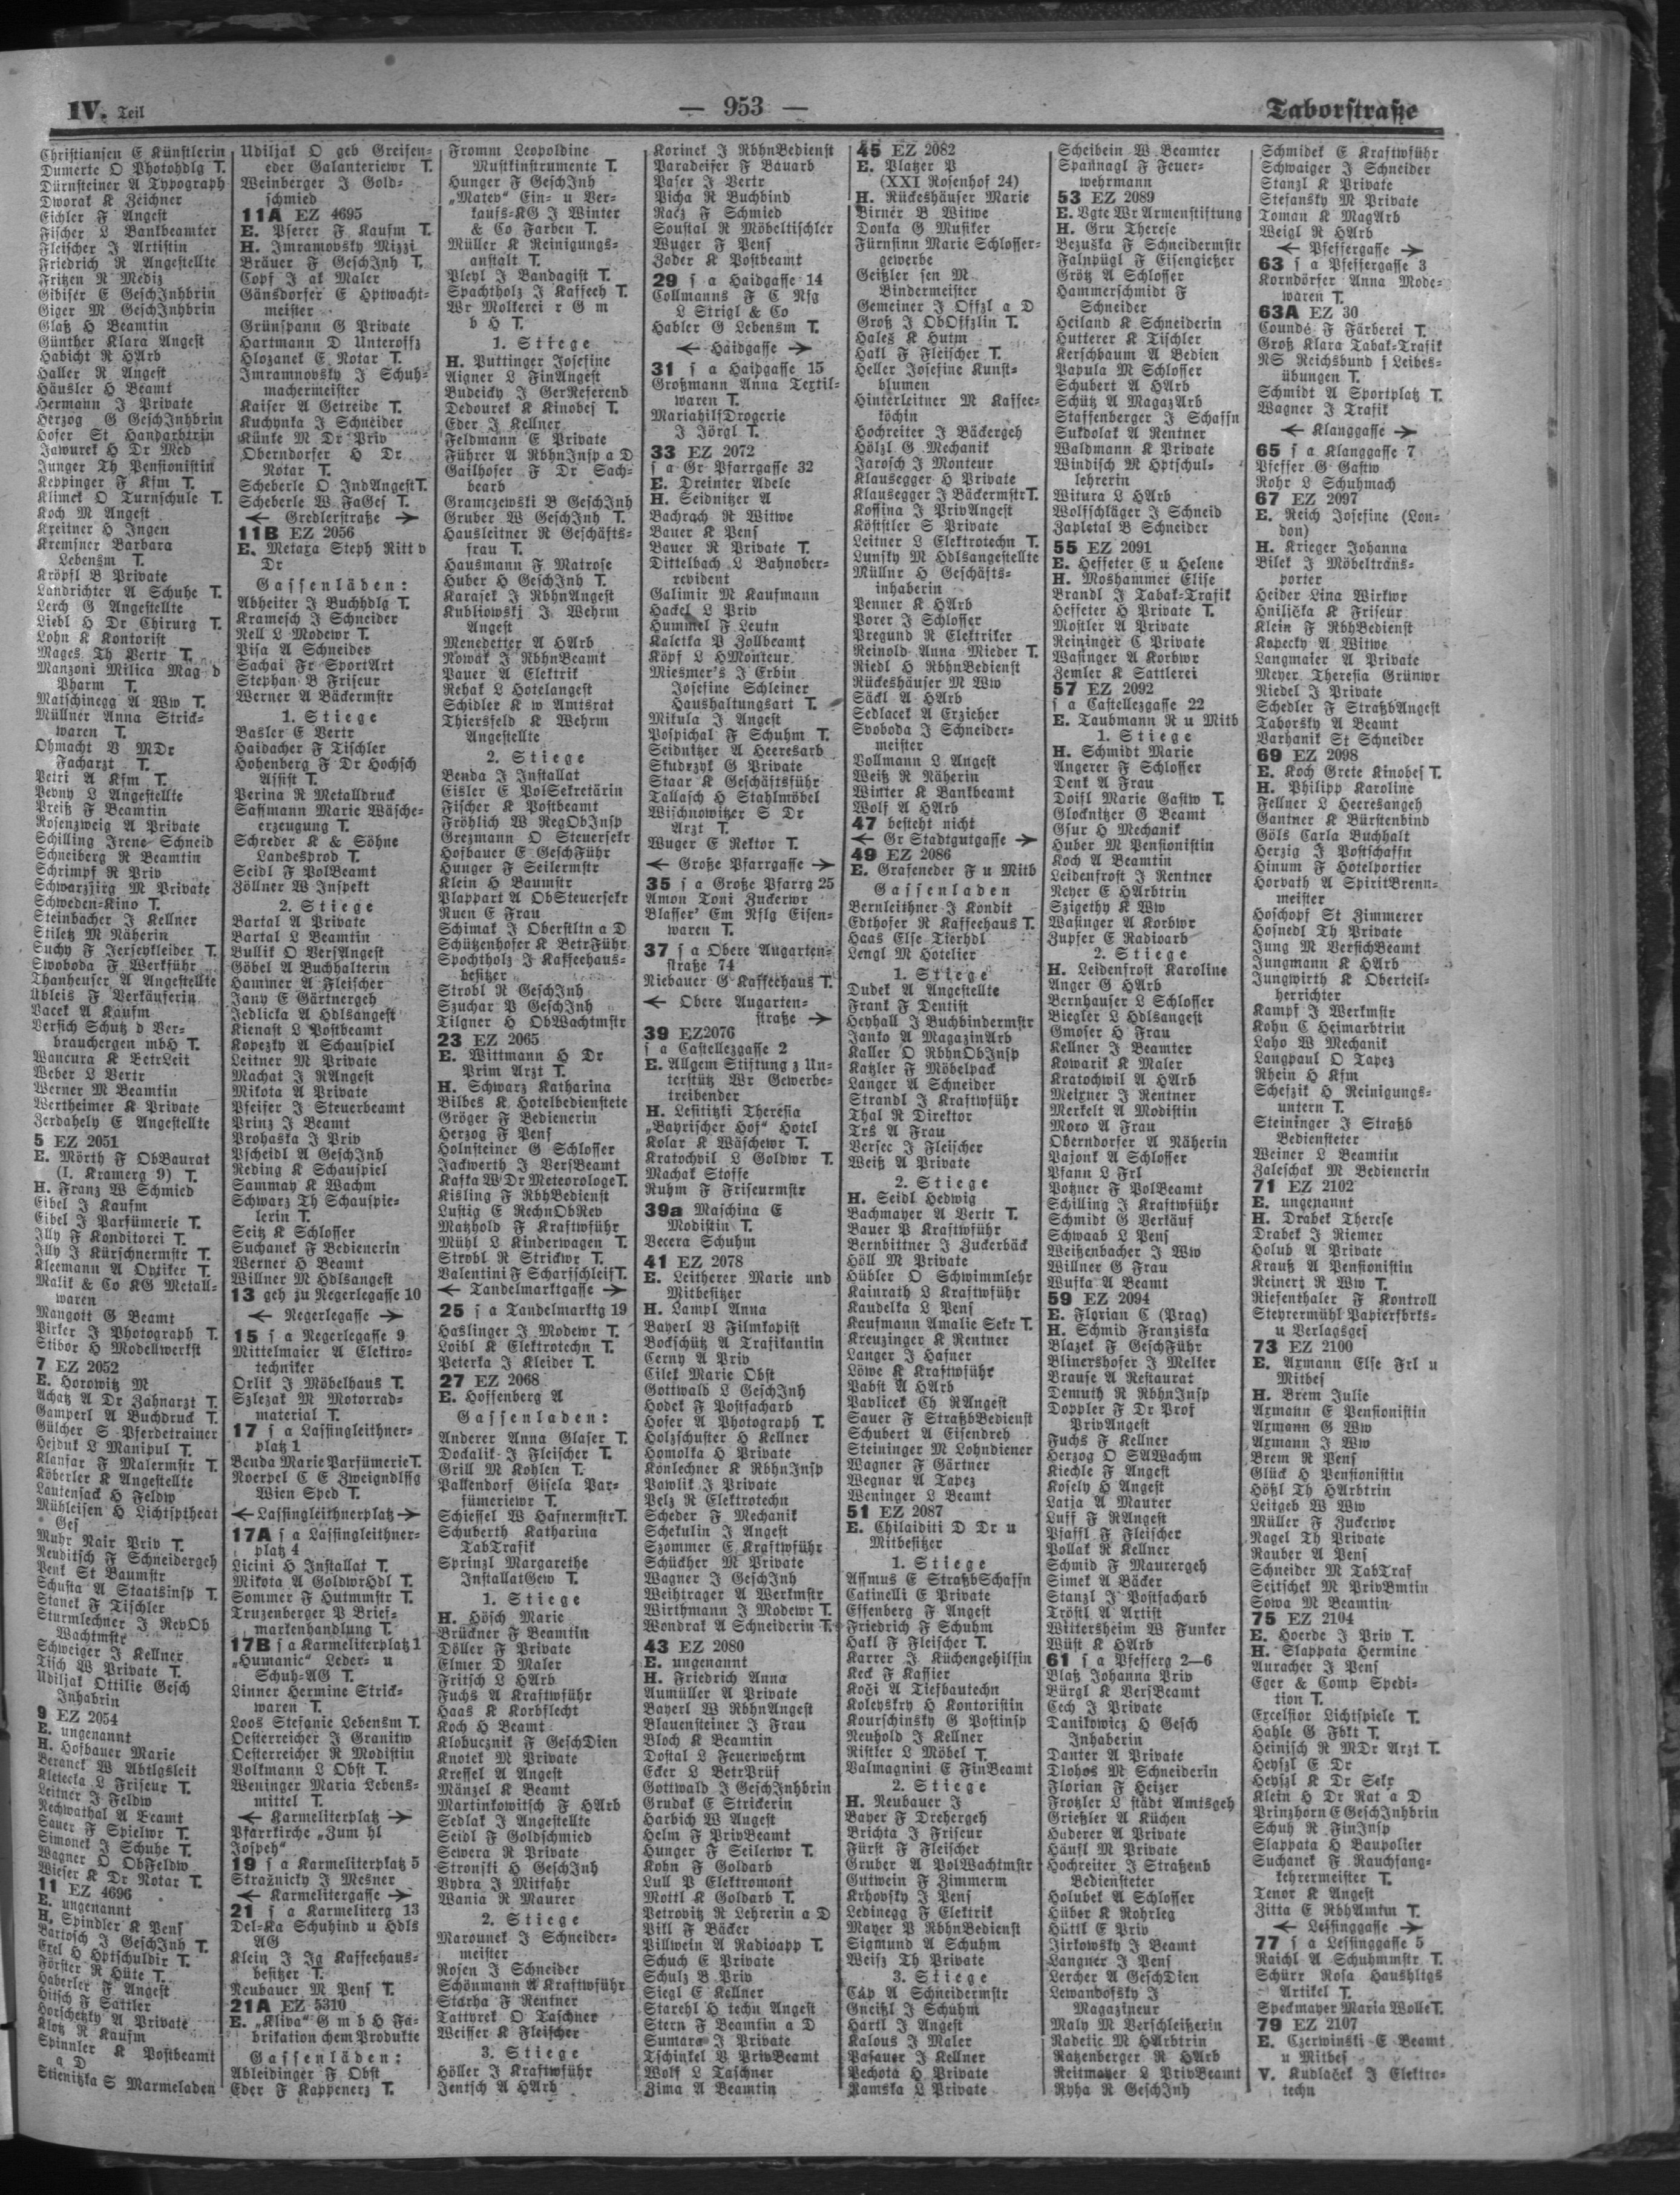 IV. Teil
— 953 —
Taborstraße
Christiansen E Künstlerin
Dumerte O Photohdlg T.
Dürnsteiner A Typograph
Dworak K Zeichner
Eichler F Angest
Fischer L Bankbeamter
Fleischer J Artistin
Friedrich R Angestellte
Fritzen R Mediz
Gibiser E GeschInhbrin
Giger M GeschInhbrin
Glaß H Beamtin
Günther Klara Angest
Habicht R HArb
Haller R Angest
Häusler H Beamt
Hermann J Private
Herzog G GeschInhbrin
Hofer St Handarbtrin
Jawurek H Dr Med
Junger Th Pensionistin
Keppinger F Kfm T.
Klimek O Turnschule T.
Koch M Angest
Kreitner H Ingen
Kremsner Barbara
Lebensm T.
Kröpfl B Private
Landrichter A Schuhe T.
Lerch G Angestellte
Liebl H Dr Chirurg T.
Lohn K Kontorist
Mages Th Vertr T.
Manzoni Milica Mag d
Pharm T.
Matschinegg A Ww T.
Müllner Anna Strick-
waren T.
Ohmacht V MDr
Facharzt T.
Petri A Kfm T.
Pevny L Angestellte
Preiß F Beamtin
Rosenzweig A Private
Schilling Irene Schneid
Schneiberg R Beamtin
Schrimpf R Priv
Schwarzjirg M Private
Schweden-Kino T.
Steinbacher J Kellner
Stiletz M Näherin
Suchy F Jerseykleider T.
Swoboda F Werkführ
Thanheuser A Angestellte
Übleis F Verkäuferin
Vacek A Kaufm
Versich Schutz d Ver-
brauchergen mbH T.
Wancura K BetrLeit
Weber L Vertr
Werner M Beamtin
Wertheimer K Private
Zerdahely E Angestellte
5 EZ 2051
E. Mörth F ObBaurat
(I. Kramerg 9) T.
H. Franz W Schmied
Eibel J Kaufm
Eibel J Parfümerie T.
Illy F Konditorei T.
Illy J Kürschnermstr T.
Kleemann A Optiker T.
Malik & Co KG Metall-
waren
Mangott G Beamt
Pirker J Photograph T.
Stibor H Modellwerkst
7 EZ 2052
E. Horowitz M
Achatz A Dr Zahnarzt T.
Gamperl A Buchdruck T.
Gülcher S Pferdetrainer
Hejduk L Manipul T.
Klansar F Malermstr T.
Köberler K Angestellte
Lautensack H Feldw
Mühleisen H Lichtsptheat
Ges
Muhr Nair Priv T.
Neuditsch F Schneidergeh
Penk St Baumstr
Schusta A Staatsinsp T.
Stanek F Tischler
Sturmlechner J RevOb
Wachtmstr
Schweiger J Kellner
Tisch W Private T.
Udiljak Ottilie Gesch
Inhabrin
9 EZ 2054
E. ungenannt
H. Hofbauer Marie
Beranek W Abtlgsleit
Kletecka L Friseur T.
Leitner J Feldw
Nechwathal A Beamt
Sauer F Spielwr T.
Simonek J Schuhe T.
Wagner O ObFeldw
Wieser K Dr Notar T.
11 EZ 4696
E. ungenannt
H. Spindler K Pens
Bartosch J GeschInh T.
Exel H Hptschuldir T.
Förster R Hüte T.
Haberler F Angest
Hitsch F Sattler
Horschetzky A Private
Klotz R Kaufm
Spinnler K Postbeamt
a D
Stienitzka S Marmeladen
Udiljak O geb Greisen-
eder Galanteriewr T.
Weinberger J Gold-
schmied
11A EZ 4695
E. Pserer F Kaufm T.
H. Imramovsky Mizzi
Bräuer F GeschInh T.
Copf J ak Maler
Gänsdorfer E Hptwacht-
meister
Grünspann G Private
Hartmann D Unteroffz
Hlozanek E Notar T.
Imramnovsky J Schuh-
machermeister
Kaiser A Getreide T.
Kuchynka J Schneider
Künke M Dr Priv
Oberndorfer H Dr
Notar T.
Scheberle O IndAngest T.
Scheberle W FaGes T.
← Gredlerstraße →
11B EZ 2056
E. Metaxa Steph Ritt v
Dr
Gassenläden:
Abheiter J Buchhdlg T.
Kramesch J Schneider
Nell L Modewr T.
Pisa A Schneider
Sachai Fr SportArt
Stephan B Friseur
Werner A Bäckermstr
1. Stiege
Basler E Vertr
Haidacher F Tischler
Hohenberg F Dr Hochsch
Assist T.
Perina R Metalldruck
Sassmann Marie Wäsche-
erzeugung T.
Schreder K & Söhne
Landesprod T.
Seidl F PolBeamt
Zöllner W Inspekt
2. Stiege
Bartal A Private
Bartal L Beamtin
Bullik O VersAngest
Göbel A Buchhalterin
Hammer A Fleischer
Jany E Gärtnergeh
Jedlicka A Hdlsangest
Kienast L Postbeamt
Kopezky A Schauspiel
Leitner M Private
Machat J RAngest
Mikota A Private
Pfeiser J Steuerbeamt
Prinz J Beamt
Prohaska J Priv
Pscheidl A GeschInh
Reding K Schauspiel
Sammay K Wachm
Schwarz Th Schauspie-
lerin T.
Seitz K Schlosser
Suchanek F Bedienerin
Werner H Beamt
Willner M Hdlsangest
13 geh zu Negerlegasse 10
← Negerlegasse →
15 s a Negerlegasse 9
Mittelmaier A Elektro-
techniker
Orlik J Möbelhaus T.
Szlezak M Motorrad-
material T.
17 s a Lassingleithner-
platz 1
Benda Marie Parfümerie T.
Noerpel C E Zweigndlssg
Wien Sped T.
← Lassingleithnerplatz →
17A s a Lassingleithner-
platz 4
Licini H Installat T.
Mikota A GoldwrHdl T.
Sommer F Hutmmstr T.
Truzenberger P Brief-
markenhandlung T.
17B s a Karmeliterplatz 1
„Humanic" Leder- u
Schuh-AG T.
Linner Hermine Strick-
waren T.
Loos Stefanie Lebensm T.
Oesterreicher J Granitw
Oesterreicher R Modistin
Volkmann L Obst T.
Weninger Maria Lebens-
mittel T.
← Karmeliterplatz →
Pfarrkirche „Zum hl
Jospeh"
19 s a Karmeliterplatz 5
Stražnicky J Mesner
← Karmelitergasse →
21 s a Karmeliterg 13
Del-Ka Schuhind u Hdls
AG
Klein J Jg Kaffeehaus-
besitzer T.
Neubauer M Pens T.
21A EZ 5310
E. „Kliva" G m b H Fa-
brikation chem Produkte
Gassenläden:
Ableidinger F Obst
Eder F Kappenerz T.
Fromm Leopoldine
Musikinstrumente T.
Hunger F GeschInh
„Matev" Ein- u Ver-
kaufs-KG J Winter
& Co Farben T.
Müller K Reinigungs-
anstalt T.
Pleyl J Bandagist T.
Spachtholz J Kaffeeh T.
Wr Molkerei r G m
b H T.
1. Stiege
H. Puttinger Josefine
Aigner L FinAngest
Budeicky J GerReferend
Dedourek K Kinobes T.
Eder J Kellner
Feldmann E Private
Führer A RbhnInsp a D
Gailhofer F Dr Sach-
bearb
Gramczewski B GeschInh
Gruber W GeschInh T.
Hausleitner R Geschäfts-
frau T.
Hausmann F Matrose
Huber H GeschInh T.
Karasek J RbhnAngest
Kubliowski J Wehrm
Angest
Menedetter A HArb
Nowak J RbhnBeamt
Pauer A Elektrik
Rehak L Hotelangest
Schidler K w Amtsrat
Thiersfeld K Wehrm
Angestellte
2. Stiege
Benda J Installat
Eisler E PolSekretärin
Fischer K Postbeamt
Fröhlich W RegObInsp
Grezmann O Steuersekr
Hofbauer E GeschFühr
Hunger F Seilermstr
Klein H Baumstr
Plappart A ObSteuersekr
Ruen E Frau
Schimak J Oberstltn a D
Schützenhofer K BetrFühr
Spochtholz J Kaffeehaus-
besitzer
Strobl R GeschInh
Szuchar P GeschInh
Tilgner H ObWachtmstr
23 EZ 2065
E. Wittmann H Dr
Prim Arzt T.
H. Schwarz Katharina
Bilbes K Hotelbedienstete
Gröger F Bedienerin
Herzog F Pens
Holnsteiner G Schlosser
Jackwerth J VersBeamt
Kafka W Dr Meteorologe T.
Kisling F RbhBedienst
Lustig E RechnObRev
Matzhold F Kraftwführ
Mühl L Kinderwagen T.
Strobl R Strickwr T.
Valentini F Scharfschleif T.
← Tandelmarktgasse →
25 s a Tandelmarktg 19
Haslinger J Modewr T.
Loibl K Elektrotechn T.
Peterka J Kleider T.
27 EZ 2068
E. Hoffenberg A
Gassenladen:
Anderer Anna Glaser T.
Dockalik J Fleischer T.
Grill M Kohlen T.
Palkendorf Gisela Par-
fümeriewr T.
Schieffel W Hafnermstr T.
Schuberth Katharina
TabTrafik
Sprinzl Margarethe
InstallatGew T.
1. Stiege
H. Hösch Marie
Brückner F Beamtin
Döller F Private
Elmer D Maler
Fritsch L HArb
Fuchs A Kraftwführ
Haas K Korbflecht
Koch H Beamt
Klobucznik F GeschDien
Knotek M Private
Kreffel A Angest
Mänzel K Beamt
Martinkowitsch F HArb
Sedlak J Angestellte
Seidl F Goldschmied
Sewera R Private
Stronski H GeschInh
Vydra J Mitfahr
Wania R Maurer
2. Stiege
Marounek J Schneider-
meister
Rosen J Schneider
Schönmann A Kraftwführ
Starha F Rentner
Tattyrek O Taschner
Weisser K Fleischer
3. Stiege
Höller J Kraftwführ
Jentsch A HArb
Korinek J RbhnBedienst
Paradeiser F Bauarb
Paser J Vertr
Picha R Buchbind
Racz F Schmied
Soustal R Möbeltischler
Wuger F Pens
Zoder K Postbeamt
29 s a Haidgasse 14
Collmanns F C Nfg
L Strigl & Co
Habler G Lebensm T.
← Haidgasse →
31 s a Haidgasse 15
Großmann Anna Textil-
waren T.
MariahilfDrogerie
J Jörgl T.
33 EZ 2072
s a Gr Pfarrgasse 32
E. Dreinter Adele
H. Seidnitzer A
Bachrach R Witwe
Bauer K Pens
Bauer R Private T.
Dittelbach L Bahnober-
revident
Galimir M Kaufmann
Hackel L Priv
Hummel F Leutn
Kaletka P Zollbeamt
Köpf L HMonteur
Miesmer's J Erbin
Josefine Schleiner
Haushaltungsart T.
Mikula J Angest
Pospichal F Schuhm T.
Seidnitzer A Heeresarb
Skudrzyk G Private
Staar K Geschäftsführ
Tallasch H Stahlmöbel
Wischnowitzer S Dr
Arzt T.
Wuger E Rektor T.
← Große Pfarrgasse →
35 s a Große Pfarrg 25
Amon Toni Zuckerwr
Blasser' Em Nflg Eisen-
waren T.
37 s a Obere Augarten-
straße 74
Niebauer G Kaffeehaus T.
← Obere Augarten-
straße →
39 EZ2076
s a Castellezgasse 2
E. Allgem Stiftung z Un-
terstütz Wr Gewerbe-
treibender
H. Lesitizki Theresia
„Bayrischer Hof" Hotel
Kolar K Wäschewr T.
Kratochvil L Goldwr T.
Machak Stoffe
Ruhm F Friseurmstr
39a Maschina E
Modistin T.
Vecera Schuhm
41 EZ 2078
E. Leitherer Marie und
Mitbesitzer
H. Lampl Anna
Bayerl V Filmkopist
Bockschütz A Trafikantin
Cerny A Priv
Cilek Marie Obst
Gottwald L GeschInh
Hodek F Postfacharb
Hofer A Photograph T.
Holzschuster H Kellner
Homolka H Private
Könlechner K RbhnInsp
Pawlik J Private
Pelz R Elektrotechn
Scheder F Mechanik
Schekulin J Angest
Szommer E Kraftwführ
Schücher M Private
Wagner J GeschInh
Weihtrager A Werkmstr
Wirthmann J Modewr T.
Wondrak A Schneiderin T.
43 EZ 2080
E. ungenannt
H. Friedrich Anna
Aumüller A Private
Bayerl W RbhnAngest
Blauensteiner J Frau
Bloch K Beamtin
Dostal L Feuerwehrm
Ecker L BetrPrüf
Gottwald J GeschInhbrin
Grudak E Strickerin
Harbich W Angest
Helm F PrivBeamt
Hunger F Seilerwr T.
Kohn F Goldarb
Lull P Elektromont
Mottl K Goldarb T.
Petrovitz R Lehrerin a D
Pill F Bäcker
Pillwein A Radioapp T.
Schuch E Private
Schulz B Priv
Siegl E Kellner
Starehl H techn Angest
Stern F Beamtin a D
Sumara J Private
Tschinkel V PrivBeamt
Wolf L Taschner
Zima A Beamtin
45 EZ 2082
E. Platzer P
(XXI Rosenhof 24)
H. Rückeshäuser Marie
Birner B Witwe
Donka G Musiker
Fürnsinn Marie Schlosser-
gewerbe
Geißler sen M
Bindermeister
Gemeiner J Offzl a D
Groß J ObOffzlin T.
Hales K Hutm
Hakl F Fleischer T.
Heller Josefine Kunst-
blumen
Hinterleitner M Kaffee-
köchin
Hochreiter J Bäckergeh
Hölzl G Mechanik
Jarosch J Monteur
Klausegger H Private
Klausegger J Bäckermstr T.
Kossina J PrivAngest
Köstitler S Private
Leitner L Elektrotechn T.
Lunsky M Hdlsangestellte
Müllnr H Geschäfts-
inhaberin
Penner K HArb
Porer J Schlosser
Pregund R Elektriker
Reinold Anna Mieder T.
Riedl H RbhnBedienst
Rückeshäuser M Ww
Säckl A HArb
Sedlacek A Erzieher
Svoboda J Schneider-
meister
Vollmann L Angest
Weiß R Näherin
Winter K Bankbeamt
Wolf A HArb
47 besteht nicht
← Gr Stadtgutgasse →
49 EZ 2086
E. Grafeneder F u Mitb
Gassenladen
Bernleithner J Kondit
Edthofer R Kaffeehaus T.
Haas Else Tierhdl
Lengl M Hotelier
1. Stiege
Dudek A Angestellte
Frank F Dentist
Heyhall J Buchbindermstr
Janko A MagazinArb
Kaller O RbhnObInsp
Katzler F Möbelpack
Langer A Schneider
Strandl J Kraftwführ
Thal R Direktor
Trs A Frau
Versec J Fleischer
Weiß A Private
2. Stiege
H. Seidl Hedwig
Bachmayer A Vertr T.
Bauer P Kraftwführ
Bernbittner J Zuckerbäck
Höll M Private
Hübler O Schwimmlehr
Kainrath L Kraftwführ
Kaudelka L Pens
Kaufmann Amalie Sekr T.
Kreuzinger K Rentner
Langer J Hafner
Löwe K Kraftwführ
Pabst A HArb
Pavlicek Ch RAngest
Sauer F StraßbBedienst
Schubert A Eisendreh
Steininger M Lohndiener
Wagner F Gärtner
Wegnar A Tapez
Weninger L Beamt
51 EZ 2087
E. Chilaiditi D Dr u
Mitbesitzer
1. Stiege
Assmus E StraßbSchaffn
Catinelli E Private
Effenberg F Angest
Friedrich F Schuhm
Hakl F Fleischer T.
Karrer J Küchengehilfin
Keck F Kassier
Koči A Tiefbautechn
Koleyskry H Kontoristin
Kourschinsky G Postinsp
Neuhold J Kellner
Ristker L Möbel T.
Valmagnini E FinBeamt
2. Stiege
H. Neubauer J
Bayer F Drehergeh
Brichta J Friseur
Fürst F Fleischer
Gruber A PolWachtmstr
Gutwein F Zimmerm
Krhovsky J Pens
Ledinegg F Elektrik
Mayer P RbhnBedienst
Sigmund A Schuhm
Weiß Th Private
3. Stiege
Cap A Schneidermstr
Gneißl J Schuhm
Hartl J Angest
Kalous J Maler
Pasauer J Kellner
Pechota H Private
Ramska L Private
Scheibein W Beamter
Spannagl F Feuer-
wehrmann
53 EZ 2089
E. Vgte Wr Armenstiftung
H. Gru Therese
Bezuška F Schneidermstr
Falnpügl F Eisengießer
Grötz A Schlosser
Hammerschmidt F
Schneider
Heiland K Schneiderin
Hutterer K Tischler
Kerschbaum A Bedien
Papula M Schlosser
Schubert A HArb
Schütz A MagazArb
Staffenberger J Schaffn
Sukdolak A Rentner
Waldmann K Private
Windisch M Hptschul-
lehrerin
Witura L HArb
Wolfschläger J Schneid
Zapletal B Schneider
55 EZ 2091
E. Heffeter E u Helene
H. Moshammer Elise
Brandl J Tabak-Trafik
Heffeter H Private T.
Mostler A Private
Reininger C Private
Wasinger A Korbwr
Zemler K Sattlerei
57 EZ 2092
s a Castellezgasse 22
E. Taubmann R u Mitb
1. Stiege
H. Schmidt Marie
Angerer F Schlosser
Denk A Frau
Doisl Marie Gastw T.
Glocknitzer G Beamt
Gsur H Mechanik
Huber M Pensionistin
Koch A Beamtin
Leidenfrost J Rentner
Reyer E HArbtrin
Szigethy K Ww
Wasinger A Korbwr
Zupfer E Radioarb
2. Stiege
H. Leidenfrost Karoline
Anger G HArb
Bernhauser L Schlosser
Biegler L Hdlsangest
Gmoser H Frau
Kellner J Beamter
Kowarik K Maler
Kratochwil A HArb
Meixner J Rentner
Merkelt A Modistin
Moro A Frau
Oberndorfer A Näherin
Pajonk A Schlosser
Pfann L Frl
Potzner F PolBeamt
Schilling J Kraftwführ
Schmidt G Verkäuf
Schwaab L Pens
Weißenbacher J Ww
Willner G Frau
Wuska A Beamt
59 EZ 2094
E. Florian C (Prag)
H. Schmid Franziska
Blazek F GeschFühr
Blinershofer J Melker
Brause A Restaurat
Demuth R RbhnInsp
Doppler F Dr Prof
PrivAngest
Fuchs F Kellner
Herzog O SAWachm
Kiechle F Angest
Kosely H Angest
Latja A Maurer
Luff F RAngest
Pfaffl F Fleischer
Pollak R Kellner
Schmid F Maurergeh
Simek A Bäcker
Stanzl J Postfacharb
Tröstl A Artist
Wittersheim W Funker
Wüst K HArb
61 s a Pfefferg 2—6
Blatz Johanna Priv
Bürgl K VersBeamt
Cech J Private
Danikowicz H Gesch
Inhaberin
Danter A Private
Dlohos M Schneiderin
Florian F Heizer
Frotzler L städt Amtsgeh
Grießler A Küchen
Huderer A Private
Häusl M Private
Hochreiter J Straßenb
Bediensteter
Holubek A Schlosser
Hüber K Rohrleg
Hüttl E Priv
Jirkowsky J Beamt
Langner J Pens
Lercher A GeschDien
Lewandofsky J
Magazineur
Maly M Verschleißerin
Radetic M HArbtrin
Ratzenberger R HArb
Reitmayer L PrivBeamt
Ryha R GeschInh
Schmidek E Kraftwführ
Schwaiger J Schneider
Stanzl K Private
Stefansky M Private
Toman K MagArb
Weigl R HArb
← Pfeffergasse →
63 s a Pfeffergasse 3
Korndörfer Anna Mode-
waren T.
63A EZ 30
Coundé F Färberei T.
Groß Klara Tabak-Trafik
NS Reichsbund f Leibes-
übungen T.
Schmidt A Sportplatz T.
Wagner J Trafik
← Klanggasse →
65 s a Klanggasse 7
Pfeffer G Gastw
Rohr L Schuhmach
67 EZ 2097
E. Reich Josefine (Lon-
don)
H. Krieger Johanna
Bilek J Möbeltrans-
porter
Heider Lina Wirkwr
Hnilička K Friseur
Klein F RbhBedienst
Kopecky A Witwe
Langmaier A Private
Meyer Theresia Grünwr
Riedel J Private
Schedler F StraßbAngest
Taborsky A Beamt
Varhanik St Schneider
69 EZ 2098
E. Koch Grete Kinobes T.
H. Philipp Karoline
Fellner L Heeresangeh
Gantner K Bürstenbind
Göls Carla Buchhalt
Herzig J Postschaffn
Hinum F Hotelportier
Horvath A SpiritBrenn-
meister
Hoschopf St Zimmerer
Hofnedl Th Private
Jung M VersichBeamt
Jungmann K HArb
Jungwirth K Oberteil-
herrichter
Kampf J Werkmstr
Kohn C Heimarbtrin
Laho W Mechanik
Langpaul O Tapez
Rhein H Kfm
Schefzik H Reinigungs-
untern T.
Steininger J Straßb
Bediensteter
Weiner L Beamtin
Zaleschak M Bedienerin
71 EZ 2102
E. ungenannt
H. Drabek Therese
Drabek J Riemer
Holub A Private
Krauß A Pensionistin
Reinert R Ww T.
Riefenthaler F Kontroll
Steyrermühl Papierfbrks-
u Verlagsges
73 EZ 2100
E. Axmann Else Frl u
Mitbes
H. Brem Julie
Axmann E Pensionistin
Axmann G Ww
Axmann J Ww
Brem R Pens
Glück H Pensionistin
Hößl Th HArbtrin
Leitgeb W Ww
Müller F Zuckerwr
Nagel Th Private
Rauber A Pens
Schneider M TabTraf
Seitschek M PrivBmtin
Sowa M Beamtin
75 EZ 2104
E. Hoerde J Priv T.
H. Slappata Hermine
Auracher J Pens
Eger & Comp Spedi-
tion T.
Excelsior Lichtspiele T.
Hahle G Fbkt T.
Heinisch R MDr Arzt T.
Heyszl E Dr
Heyszl K Dr Sekr
Klein H Dr Rat a D
Prinzhorn E GeschInhbrin
Schuh R FinInsp
Slappata H Baupolier
Suchanek F Rauchfang-
kehrermeister T.
Tenor K Angest
Zitta E RbhAmtm T.
← Lessinggasse →
77 s a Lessinggasse 5
Raichl A Schuhmmstr T.
Schürr Rosa Haushltgs
Artikel T.
Speckmayer Maria Wolle T.
79 EZ 2107
E. Czerwinski E Beamt
u Mitbes
V. Kudlaček J Elektro-
techn